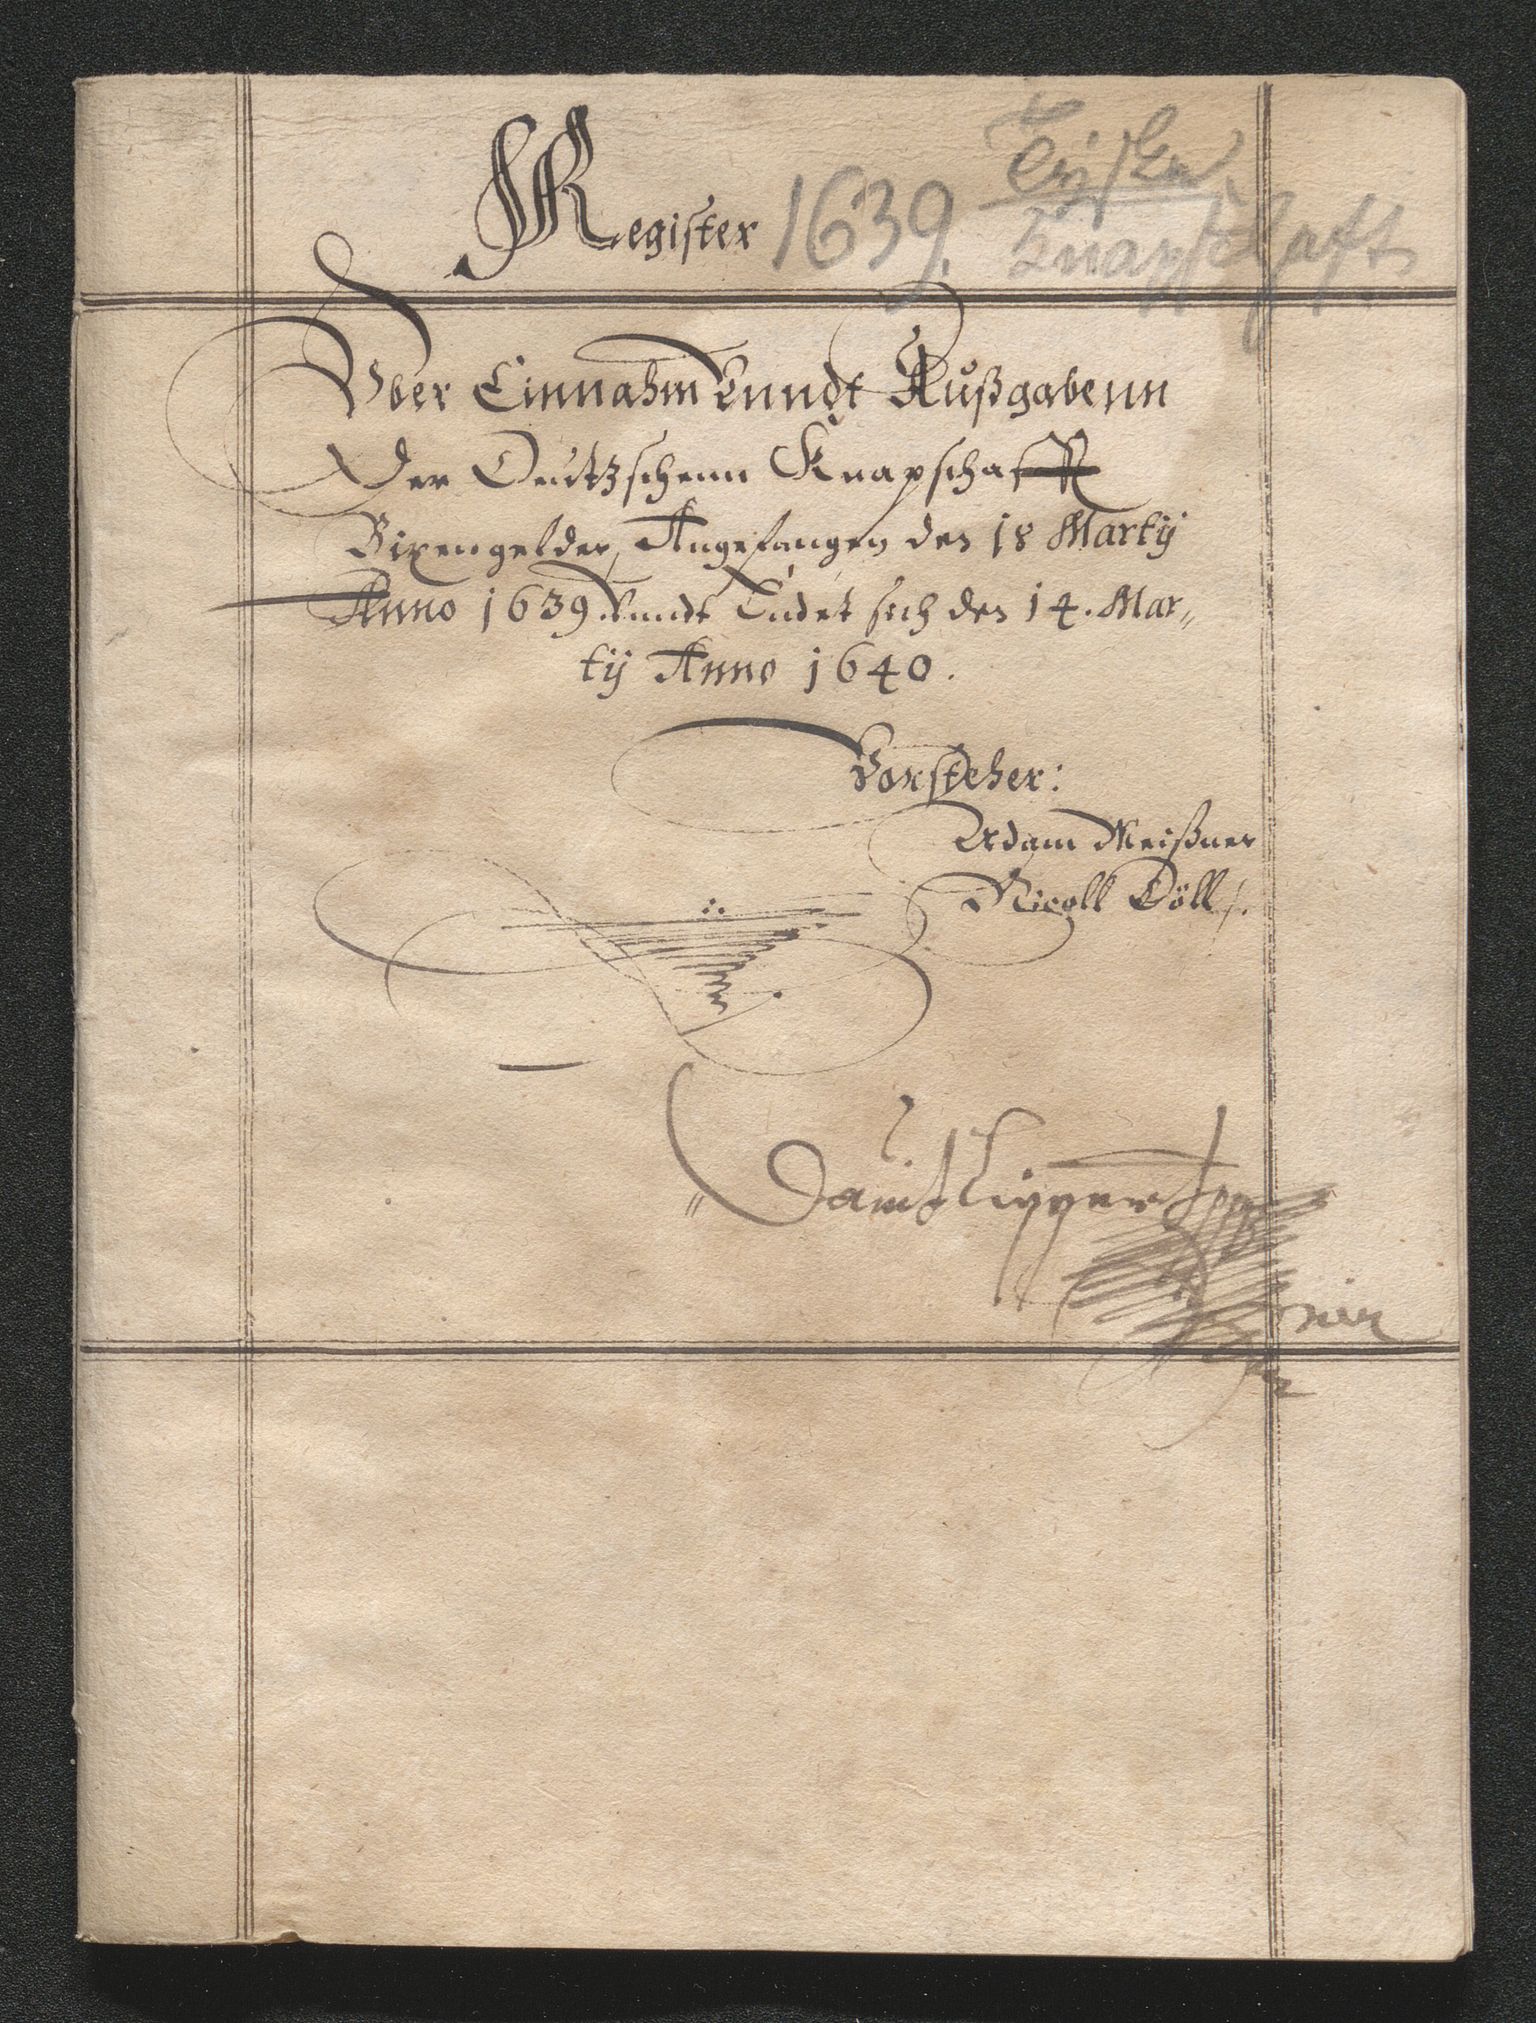 Register 1639. Tysken
Knapschaft
Vber Einnahm Vnndt Außgabenn
Der Deutzschenn Knapschafft
Bixengelder, Angefangen den 18 Marty
Anno 1639. Vnndt Endet sich den 14. Mar„
ty Anno 1640.
Vorsteher:
Adam Meißner
Nicoll Döll
Davit Lippert